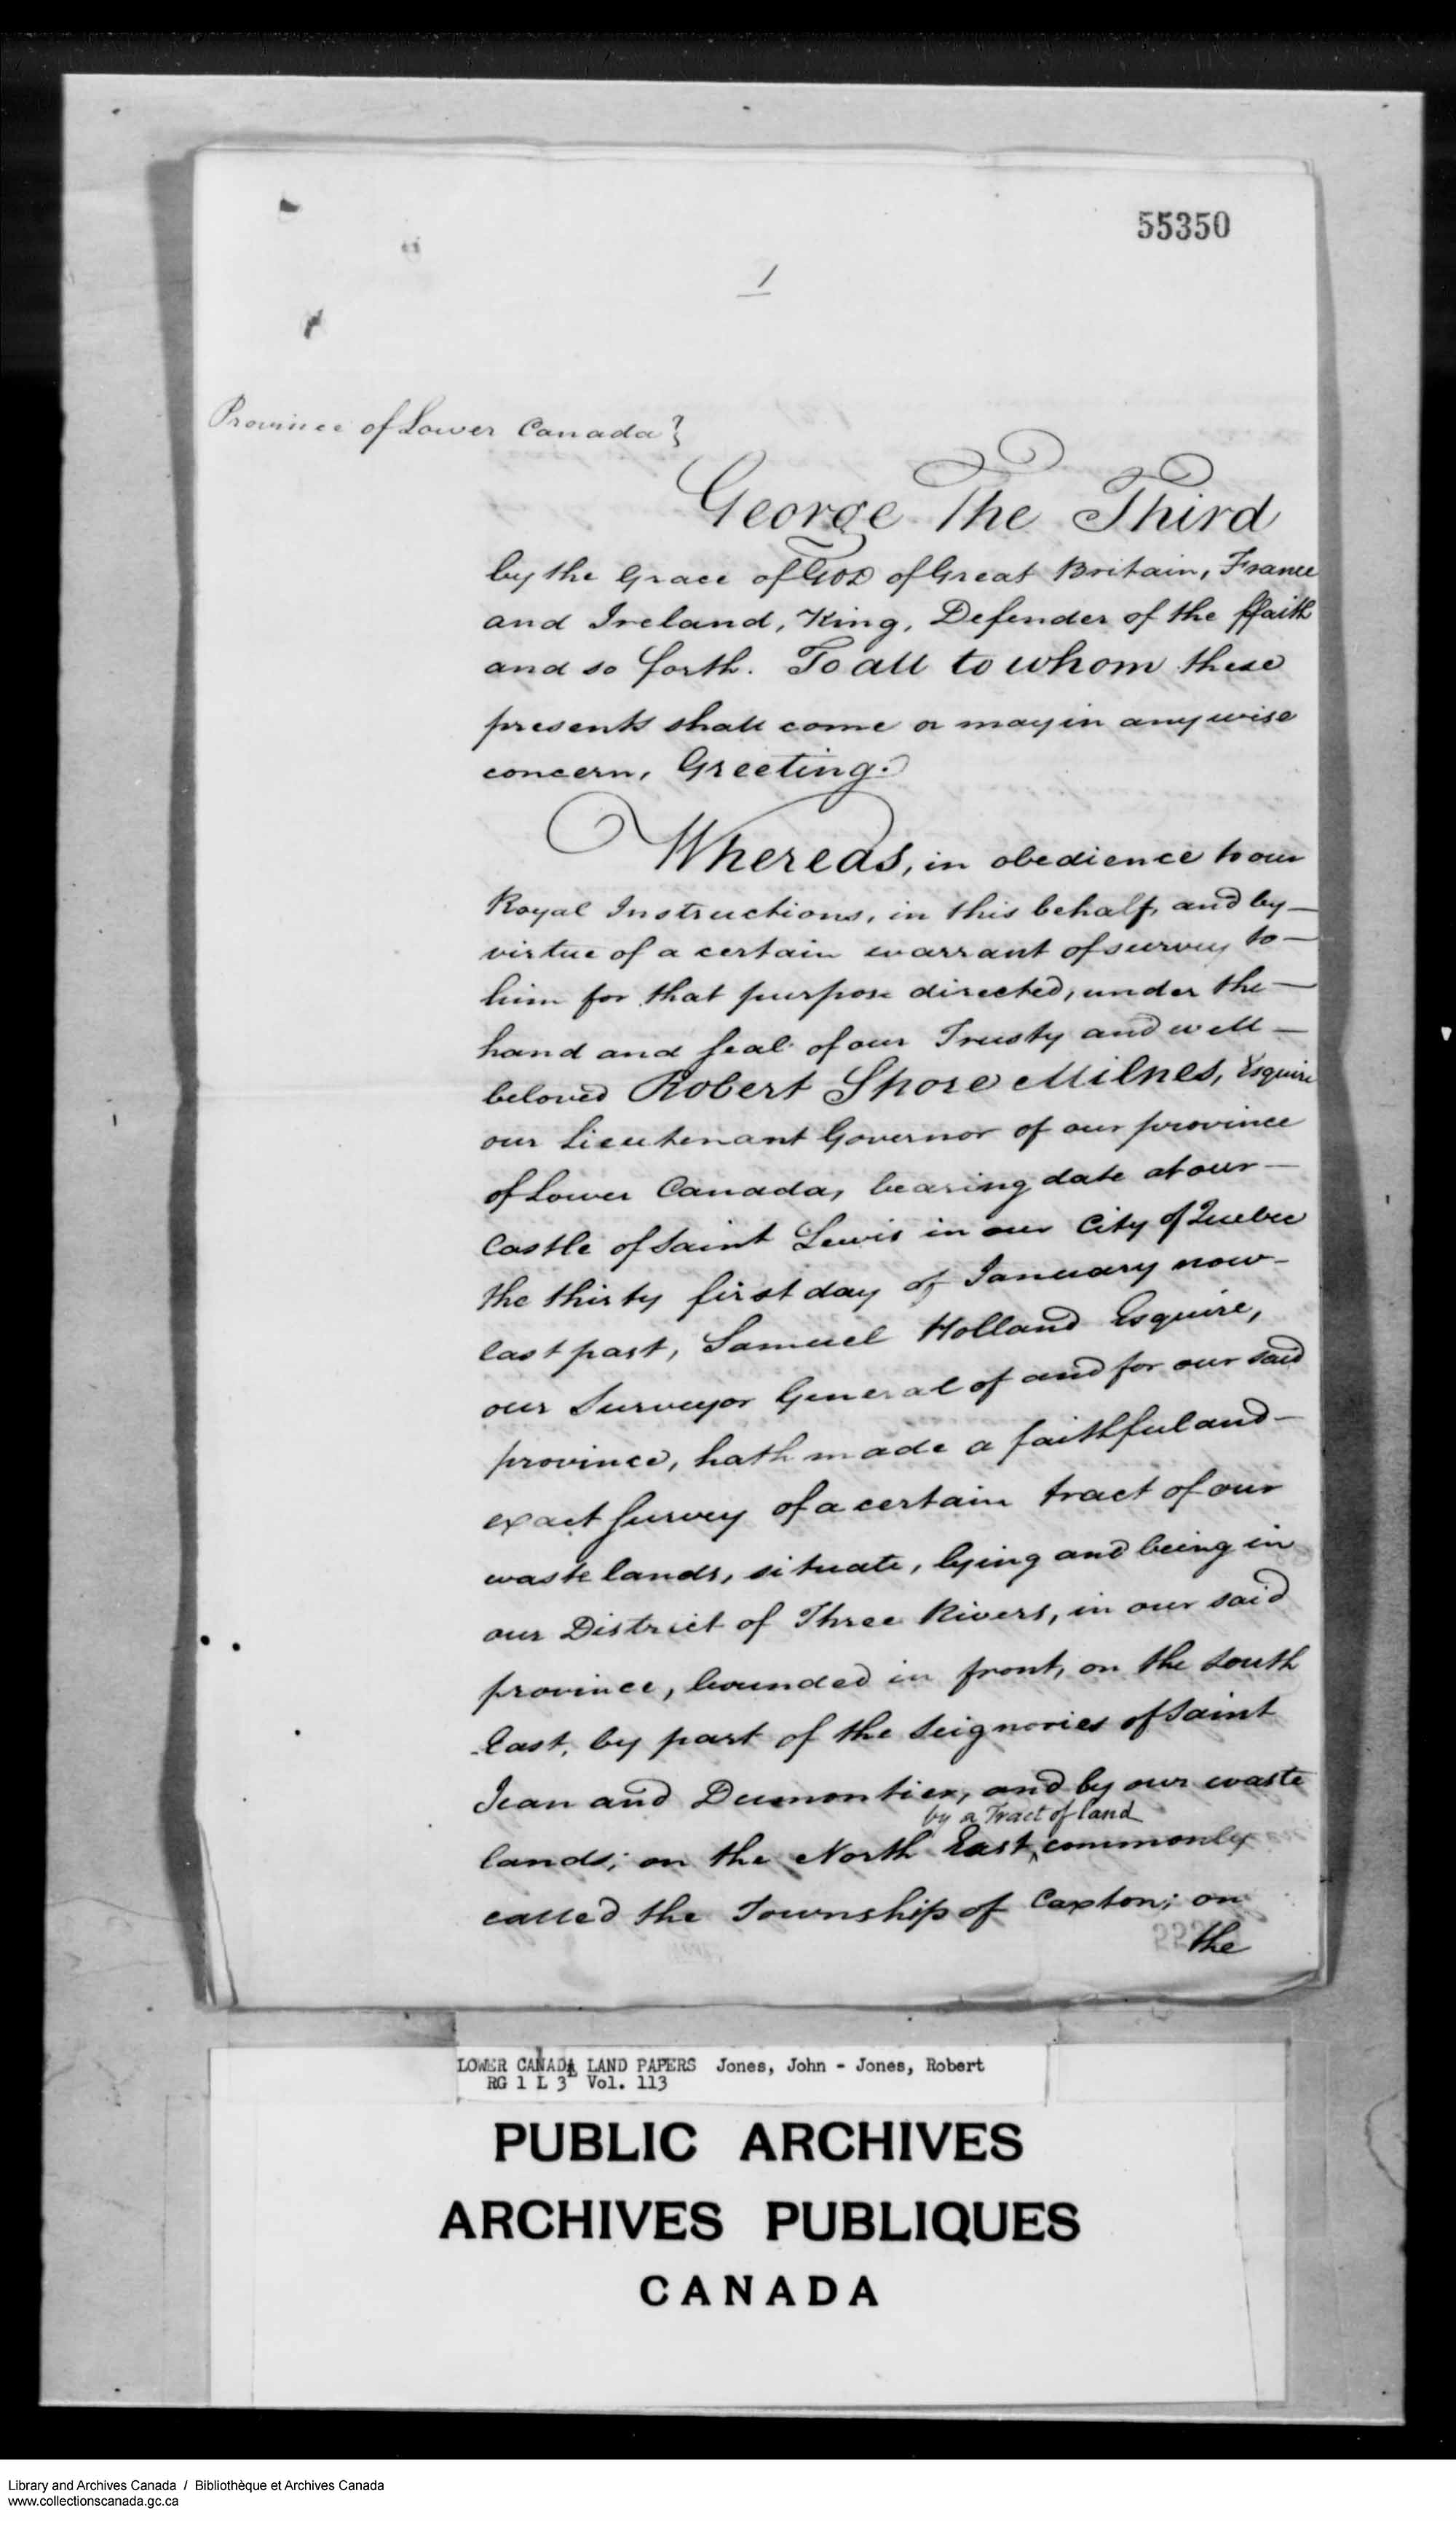 55350
1
Province of Lower Canada }
George The Third
by the Grace of GOD of Great Britain, France
and Ireland, King, Defender of the ffaith
and so forth. To all to whom these
presents shall come or may in any wise
concern, Greeting.
Whereas, in obedience to our
Royal Instructions, in this behalf, and by —
virtue of a certain warrant of survey to —
him for that purpose directed, under the —
hand and seal of our Trusty and well —
beloved Robert Shore Milnes, Esquire
our Lieutenant Governor of our province
of Lower Canada, bearing date at our —
Castle of Saint Lewis in our City of Quebec
the thirty first day of January now —
last past, Samuel Holland Esquire,
our Surveyor General of and for our said
province, hath made a faithful and —
exact survey of a certain tract of our
waste lands, situate, lying and being in
our District of Three Rivers, in our said
province, bounded in front, on the South
East, by part of the Seignories of Saint
Jean and Dumontier, and by our waste
by a Tract of land
lands; on the North East, commonly
called the Township of Caxton; on
the
LOWER CANADA LAND PAPERS Jones, John - Jones, Robert
RG 1 L 3 Vol. 113
PUBLIC ARCHIVES
ARCHIVES PUBLIQUES
CANADA
Library and Archives Canada / Bibliothèque et Archives Canada
www.collectionscanada.gc.ca